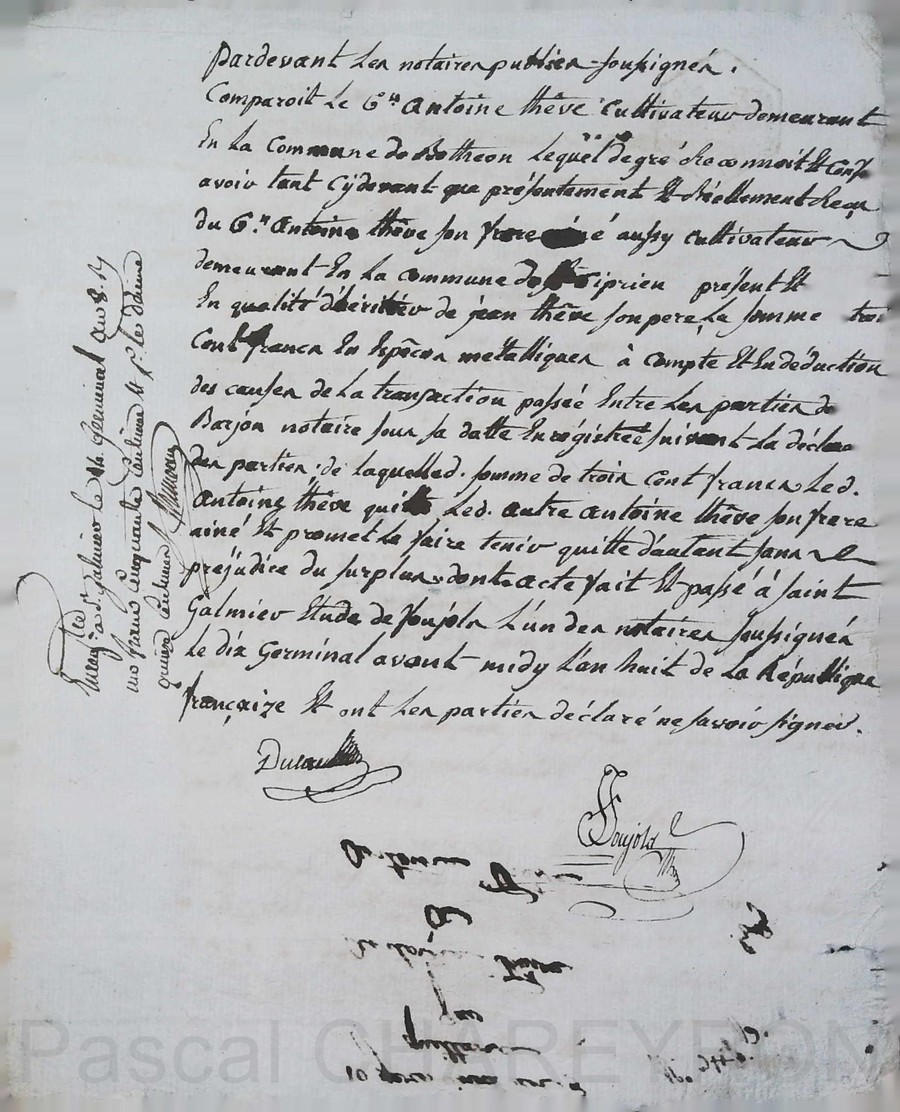 Pardevant Les notaires publics soussignés.
Comparoit Le C.en antoine thève cultivateur demeurant
En La Commune de Botheon Lequel de gré a Reconnoit Et Confe
avoir tant Cydevant que présentement Et Réellement Reçu
du C.en antoine thève son frere ainé aussy cultivateur
demeurant En La commune de St Ciprien présent Et
En qualité d'héritier de jean thève son pere, La somme troi
Cent francs En Espèces métalliques à compte Et En déduction
des causes de La transaction passée Entre Les parties de
Barjon notaire sous sa datte Enregistrée suivant La déclara
des parties. de Laquelle d. somme de trois cent francs Led.
antoine thève quitte Led. autre antoine thève son frere
ainé Et promet Le faire tenir quitte d'autant sans
préjudice du surplus. dont acte fait Et passé à saint
Galmier Etude de Soujols L'un des notaires soussignés
Le dix Germinal avant midy L'an huit de La République
françaize Et ont Les parties déclaré ne savoir signer.
Soujols
Enreg.é à St Galmier le 14 Germinal an 8. R
un franc cinquante centimes Et p.r le dxime
quinze centimes
Pascal CHAREYRON